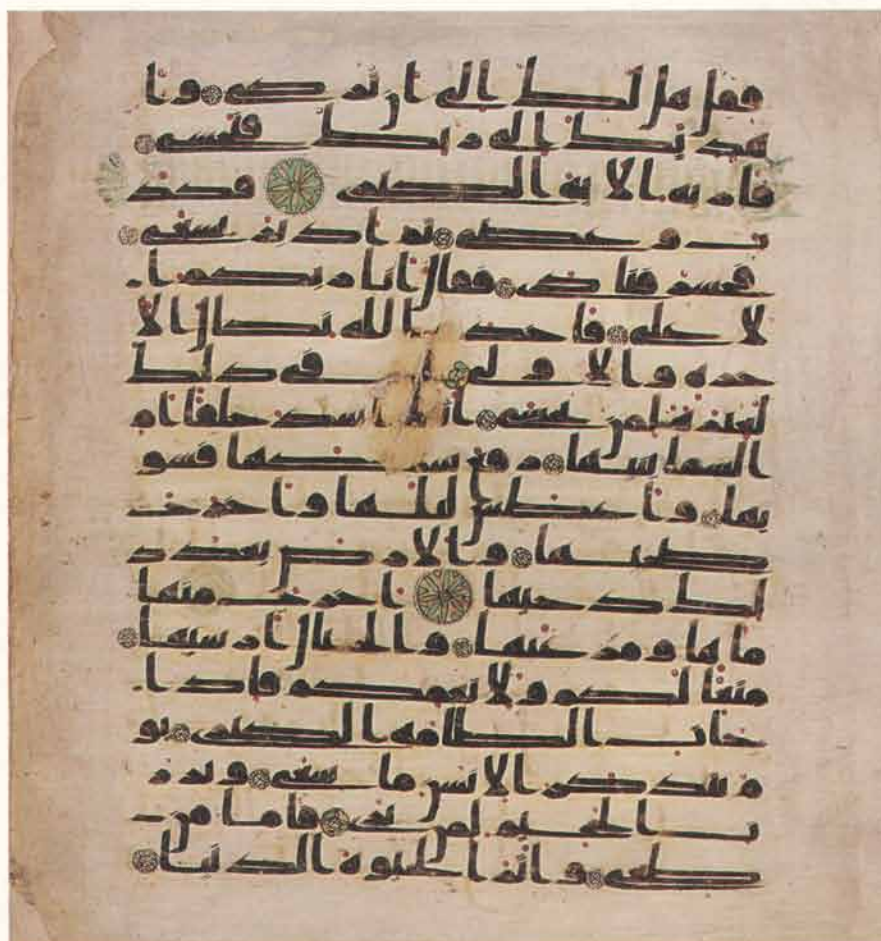 فقل هل لك الى ان تزكى وا
هديك الى ربك فتخشى
فاريه الاية الكبرى فكذ
ب وعصى ثم ادبر يسعى
فحشر فنادى فقال انا ربكم ا
لاعلى فاخذه الله نكال الا
خرة والاولى ان فى ذلك
لعبرة لمن يخشى اانتم اشد خلقا ام
السما بنيها رفع سمكها فسو
يها واغطش ليلها واخرج
ضحيها والارض بعد ذ
لك دحيها اخرج منها
ماها ومرعيها والجبال ارسيها
متعا لكم ولانعمكم فاذا
جات الطامة الكبرى يو
م يتذكر الانسن ما سعى وبرز
ت الجحيم لمن يرى فاما من
طغى واثر الحيوة الدنيا